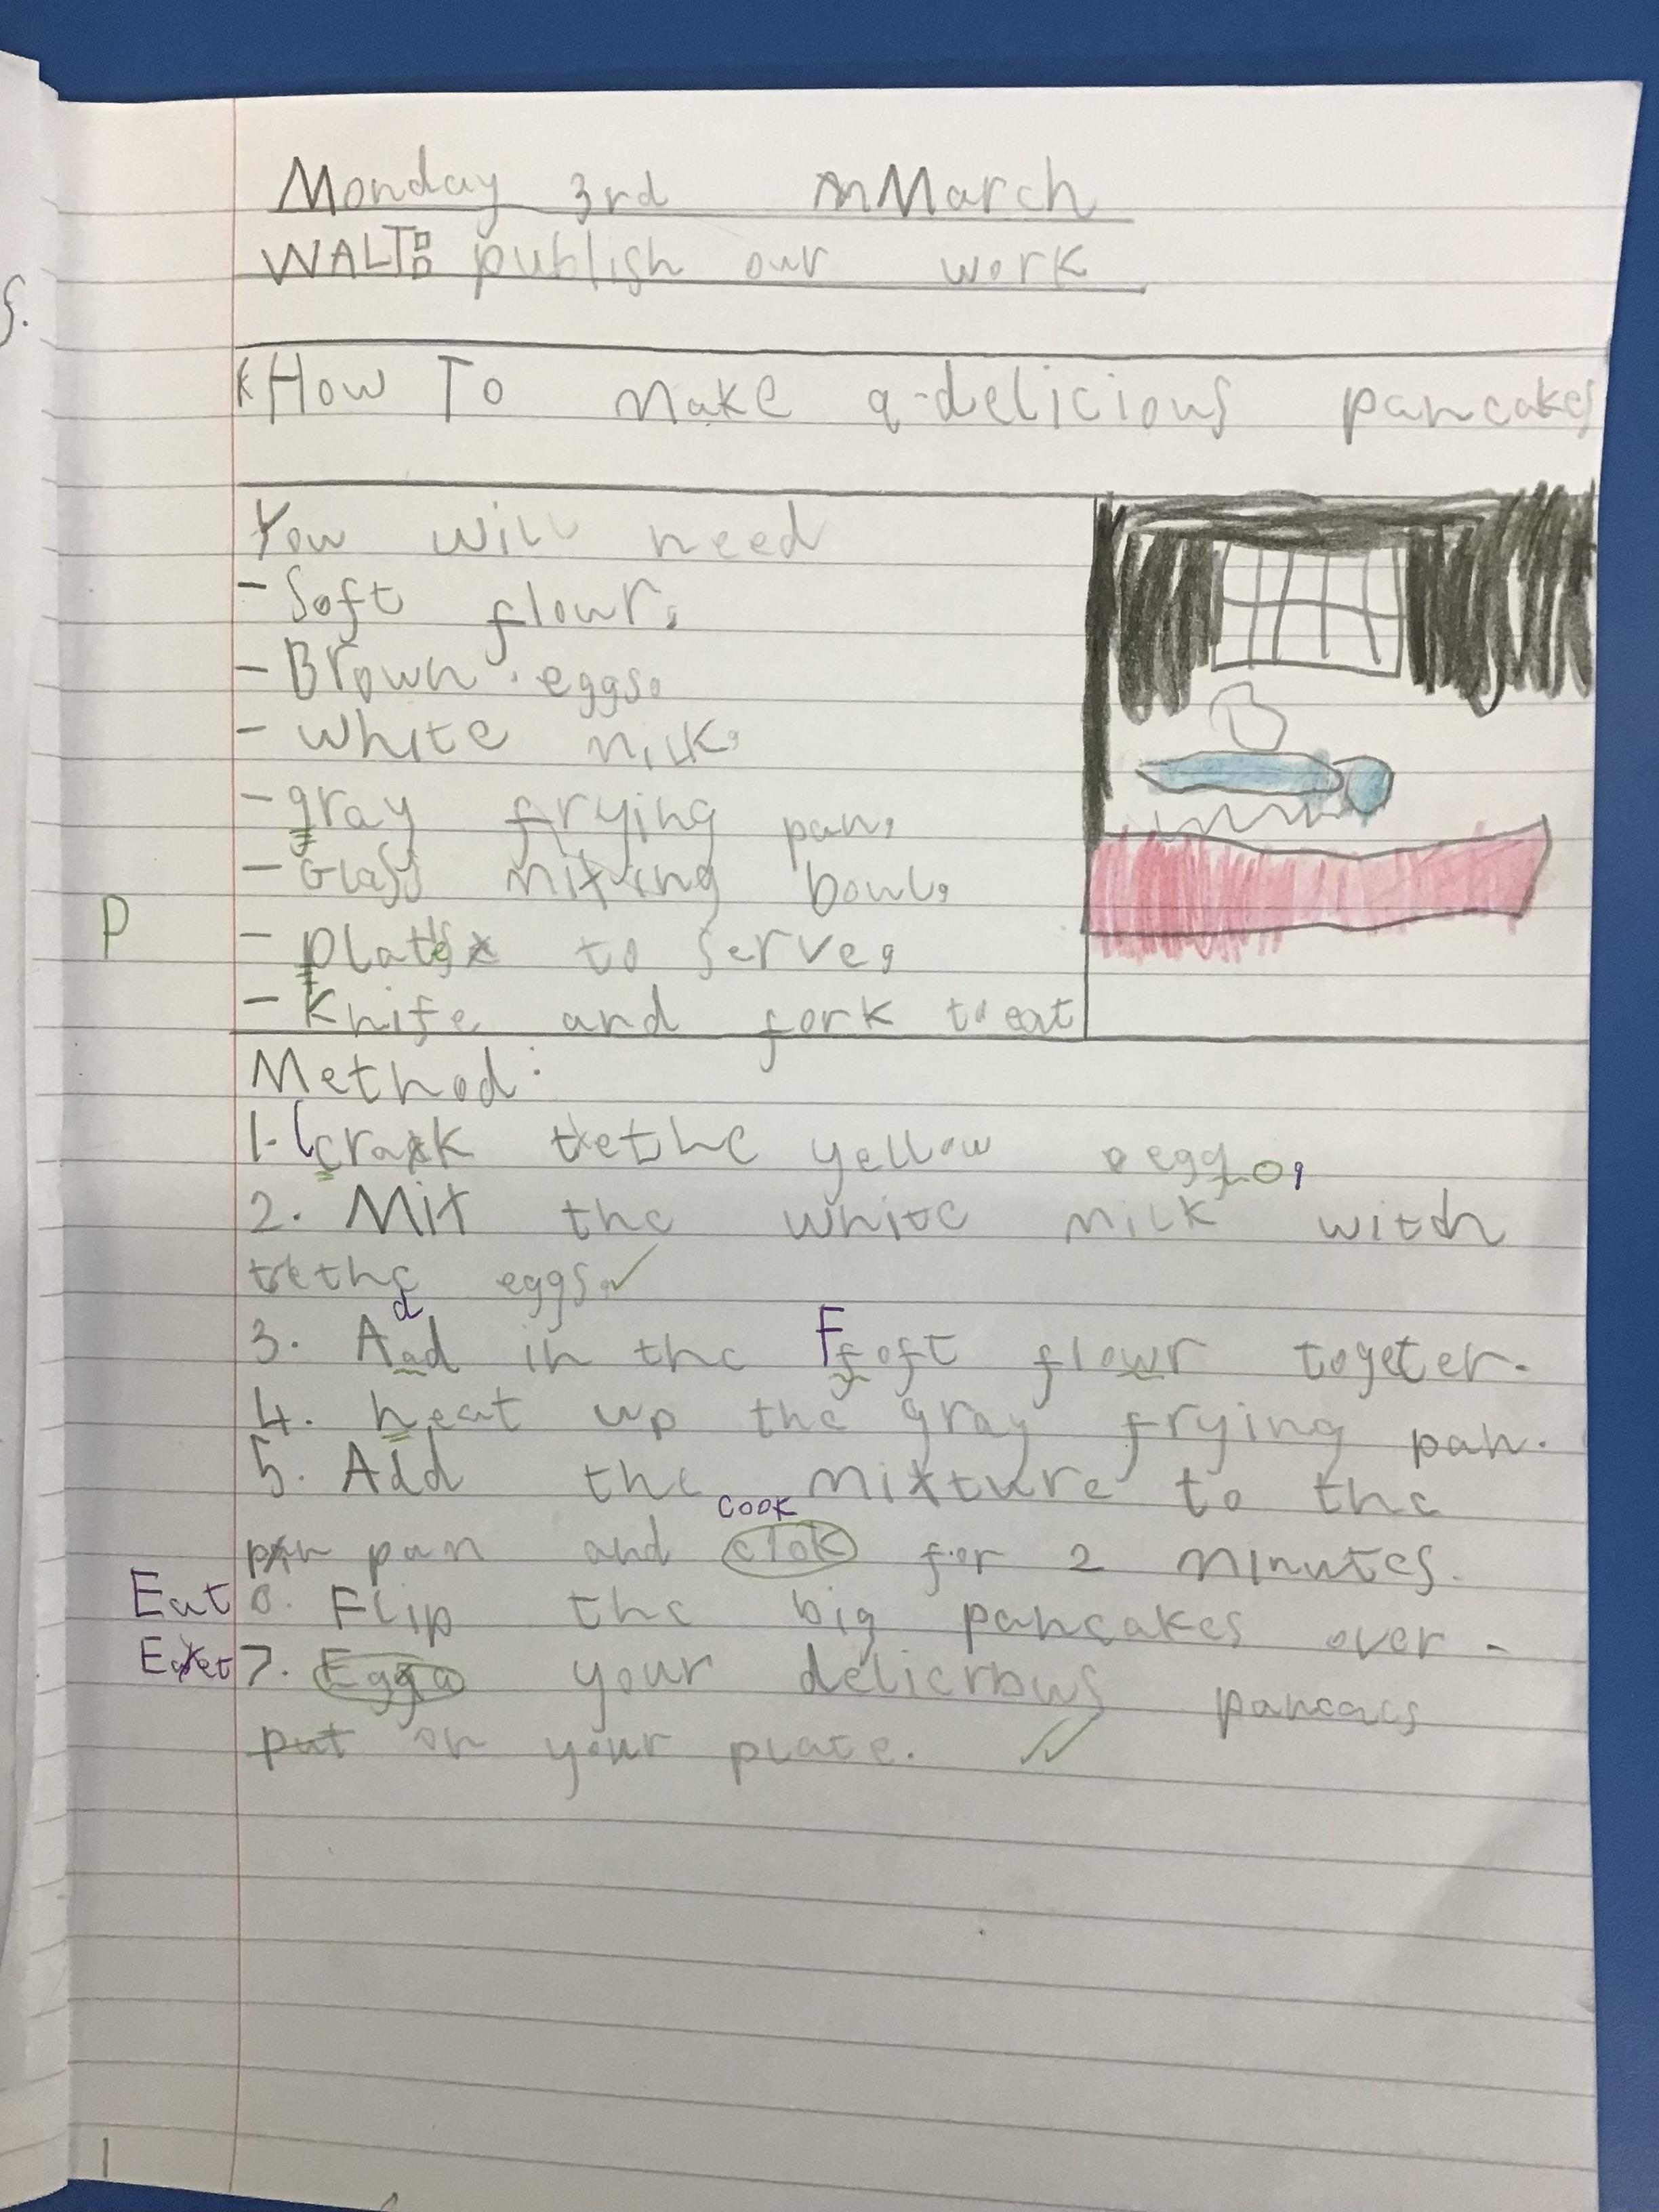 Monday 3rd March
WALT: publish our work
How To make a delicious pancakes
You will need
- Soft flour.
- Brown eggs.
- white milk.
- gray frying pan.
- Glass mixing bowl.
P
- plates to serve.
- Knife and fork to eat
Method:
1. crack the yellow egg.
2. Mix the white milk with
the eggs.
d
3. Aad in the F foft flowr togeter.
4. heat up the gray frying pan.
5. Add the mixture to the
cook
pan and clok for 2 minutes.
Eat 6. Flip the big pancakes over.
Eat 7. Egga your delicious pancacs
put on your plate.